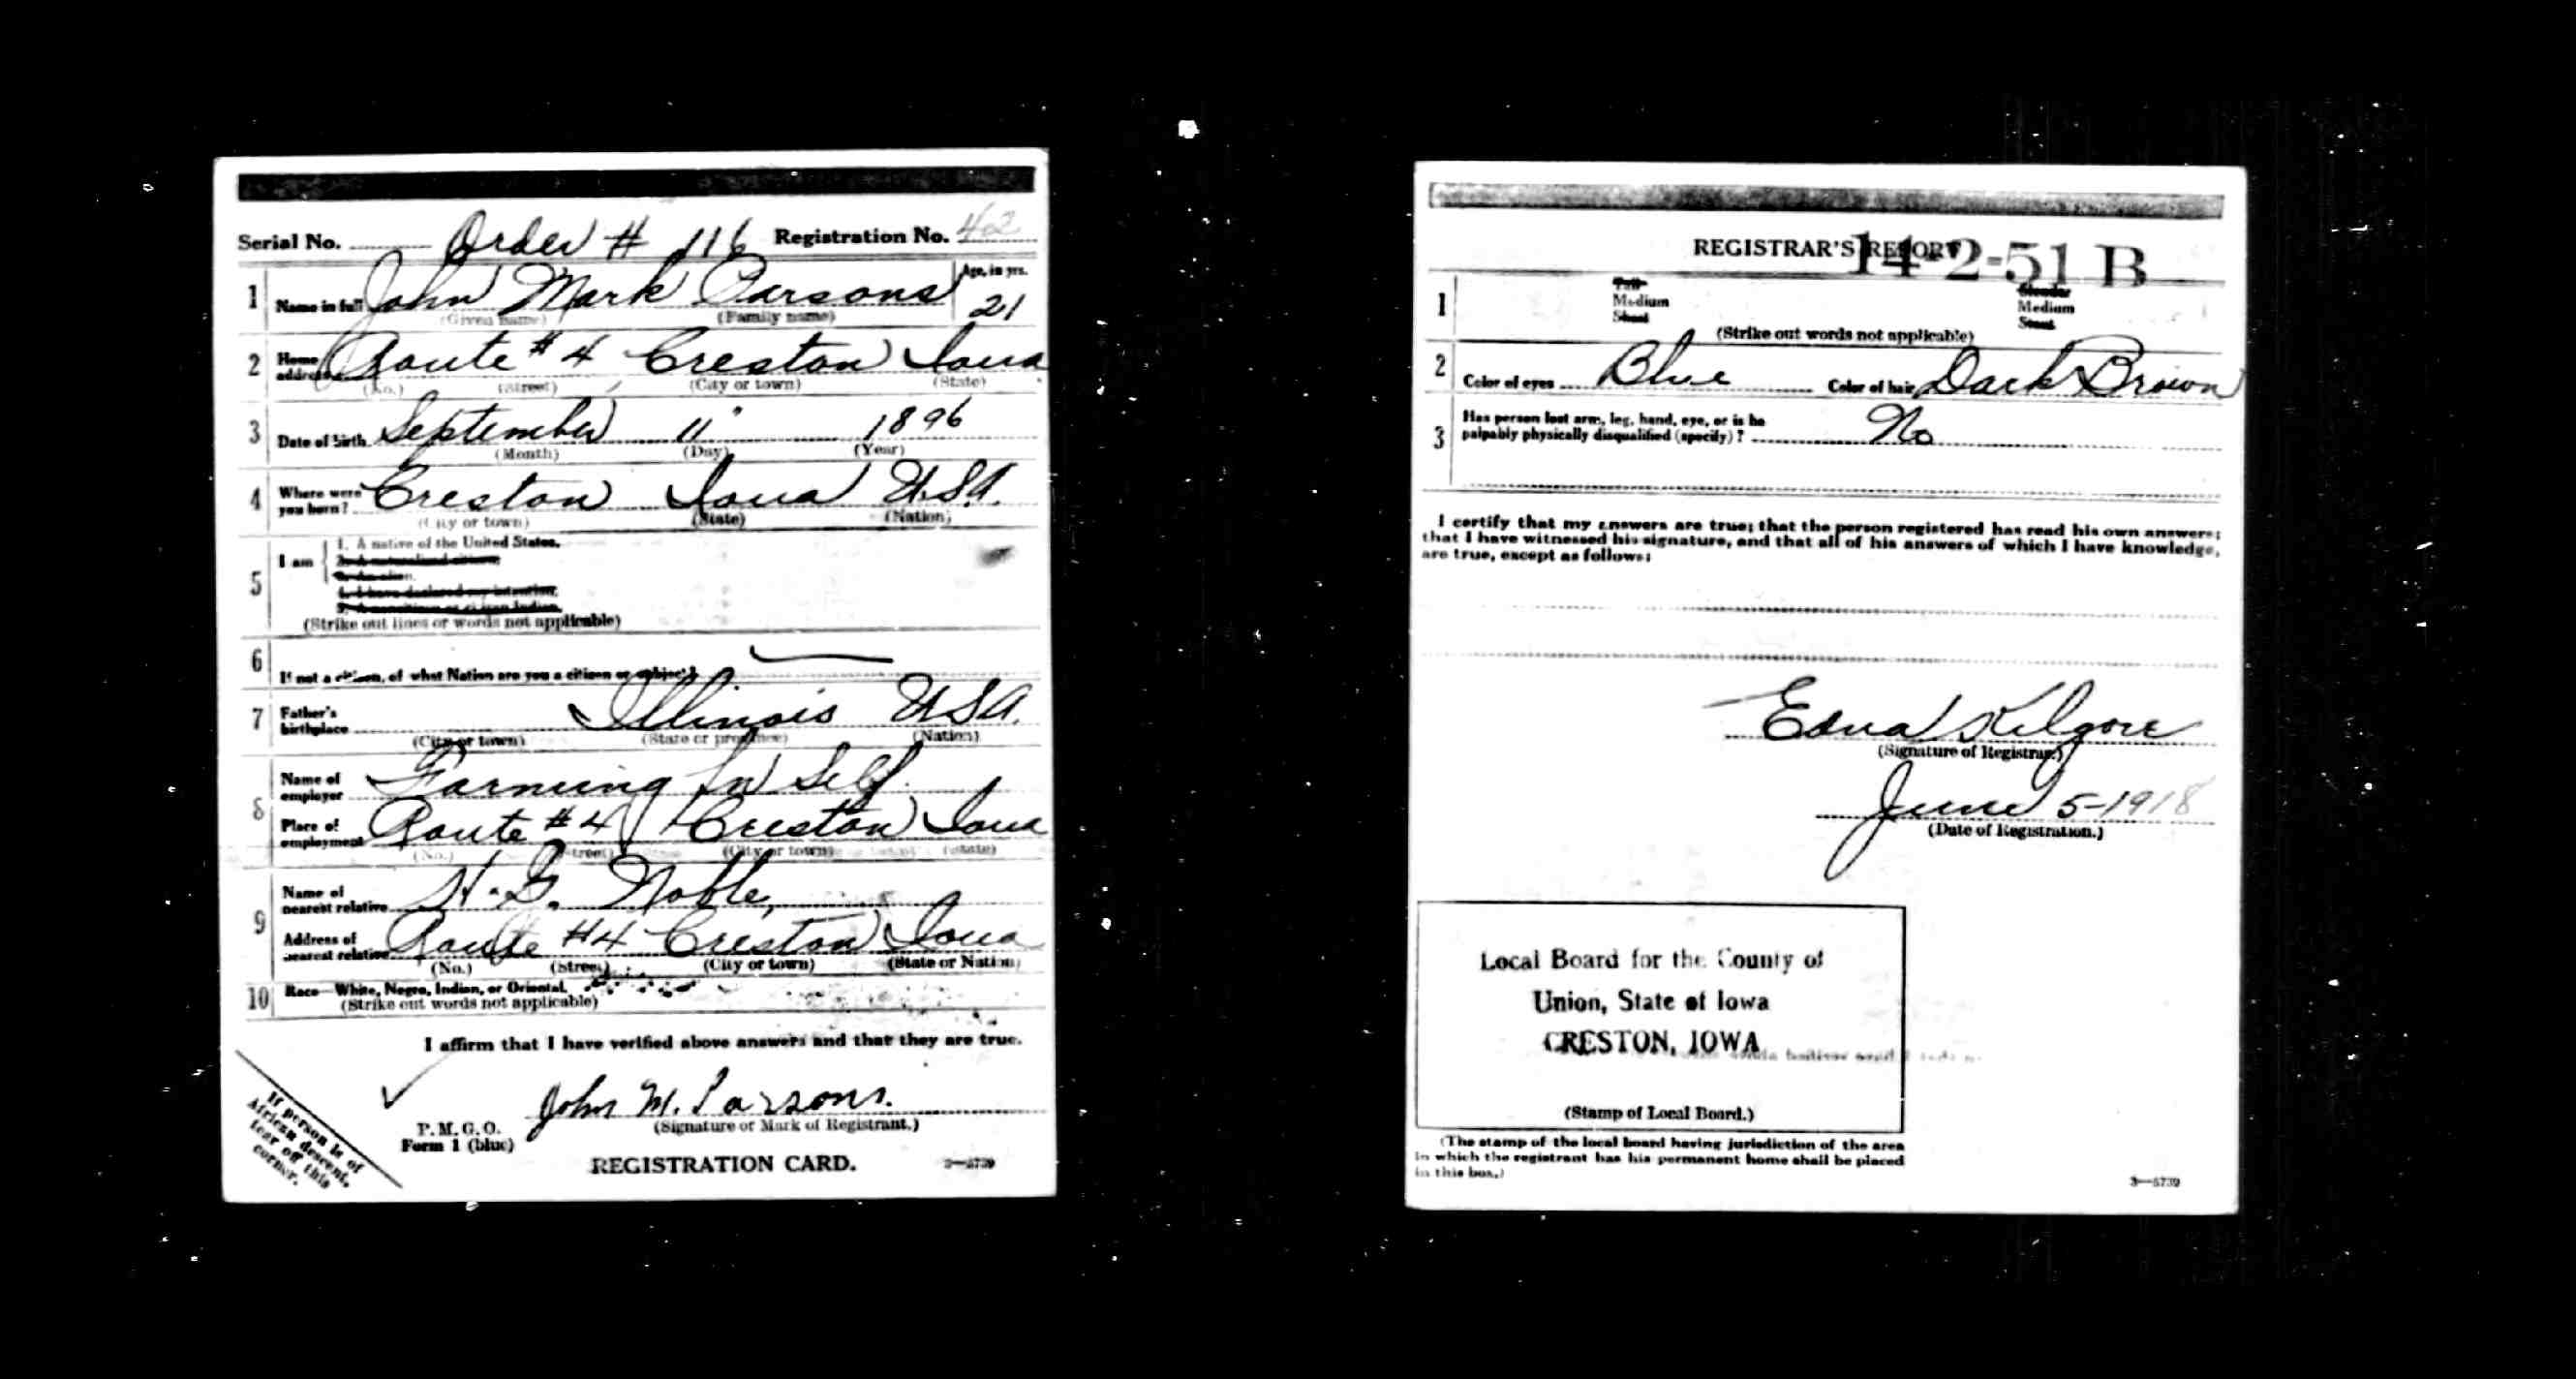 Serial No. Order # 116 Registration No. 42
1 Name in full John Mark Parsons Age, in yrs. 21
(Given name) (Family name)
2 Home address Route #4 Creston Iowa
(No.) (Street) (City or town) (State)
3 Date of birth September 11 1896
(Month) (Day) (Year)
4 Where were you born? Creston Iowa U.S.A.
(City or town) (State) (Nation)
5 I am 1. A native of the United States.
2. A naturalized citizen.
3. An alien.
4. I have declared my intention.
5. A noncitizen or citizen Indian.
(Strike out lines or words not applicable)
6 If not a citizen, of what Nation are you a citizen or subject?
7 Father's birthplace Illinois U.S.A.
(City or town) (State or province) (Nation)
8 Name of employer Farming for Self.
Place of employment Route #4 Creston Iowa
(No.) (Street) (City or town) (State)
9 Name of nearest relative H. G. Noble,
Address of nearest relative Route #4 Creston Iowa
(No.) (Street) (City or town) (State or Nation)
10 Race—White, Negro, Indian, or Oriental.
(Strike out words not applicable)
I affirm that I have verified above answers and that they are true.
John M. Parsons.
(Signature or Mark of Registrant.)
P. M. G. O.
Form 1 (blue)
REGISTRATION CARD.
3—5739
If person is of
African descent,
tear off this
corner.
REGISTRAR'S REPORT
14-2-51 B
1 Tall Slender
Medium Medium
Short Stout
(Strike out words not applicable)
2 Color of eyes Blue Color of hair Dark Brown
3 Has person lost arm, leg, hand, eye, or is he
palpably physically disqualified (specify)? No
I certify that my answers are true; that the person registered has read his own answers;
that I have witnessed his signature, and that all of his answers of which I have knowledge,
are true, except as follows:
Edna Kilgore
(Signature of Registrar.)
June 5-1918
(Date of Registration.)
Local Board for the County of
Union, State of Iowa
CRESTON, IOWA
(Stamp of Local Board.)
(The stamp of the local board having jurisdiction of the area
in which the registrant has his permanent home shall be placed
in this box.)
3—5739